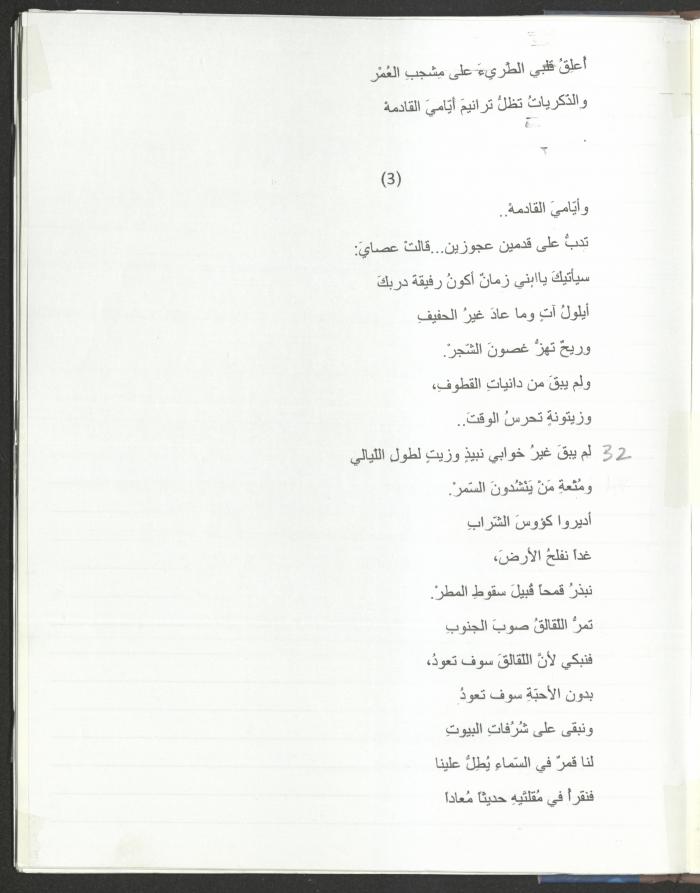 أعلِقُ قلبي الطّريءَ على مِشجبِ العُمْر
والذّكرياتُ تظلُّ ترانيمَ أيّاميَ القادمهْ
(3)
وأيّاميَ القادمهْ..
تدبُّ على قدمين عجوزين...قالتْ عصايَ:
سيأتيكَ ياابني زمانٌ أكونُ رفيقة دربكَ
أيلولُ آتٍ وما عادَ غيرُ الحفيفِ
وريحٌ تهزُّ غصونَ الشّجرْ.
ولم يبقَ من دانياتِ القطوفِ،
وزيتونةٍ تحرسُ الوقتَ..
لم يبقَ غيرُ خوابي نبيذٍ وزيتٍ لطولِ اللّيالي 32
ومُتْعةِ مَنْ يَنْشُدونَ السّمرْ.
أديروا كؤوسَ الشّرابِ
غداً نفلحُ الأرضَ،
نبذرُ قمحاً قُبيلَ سقوطِ المطرْ.
تمرُّ اللقالقُ صوبَ الجنوبِ
فنبكي لأنَّ اللقالقَ سوف تعودُ،
بدون الأحبّةِ سوف تعودُ
ونبقى على شُرُفاتِ البيوتِ
لنا قمرٌ في السّماءِ يُطِلُّ علينا
فنقرأُ في مُقلتَيهِ حديثاً مُعاداً